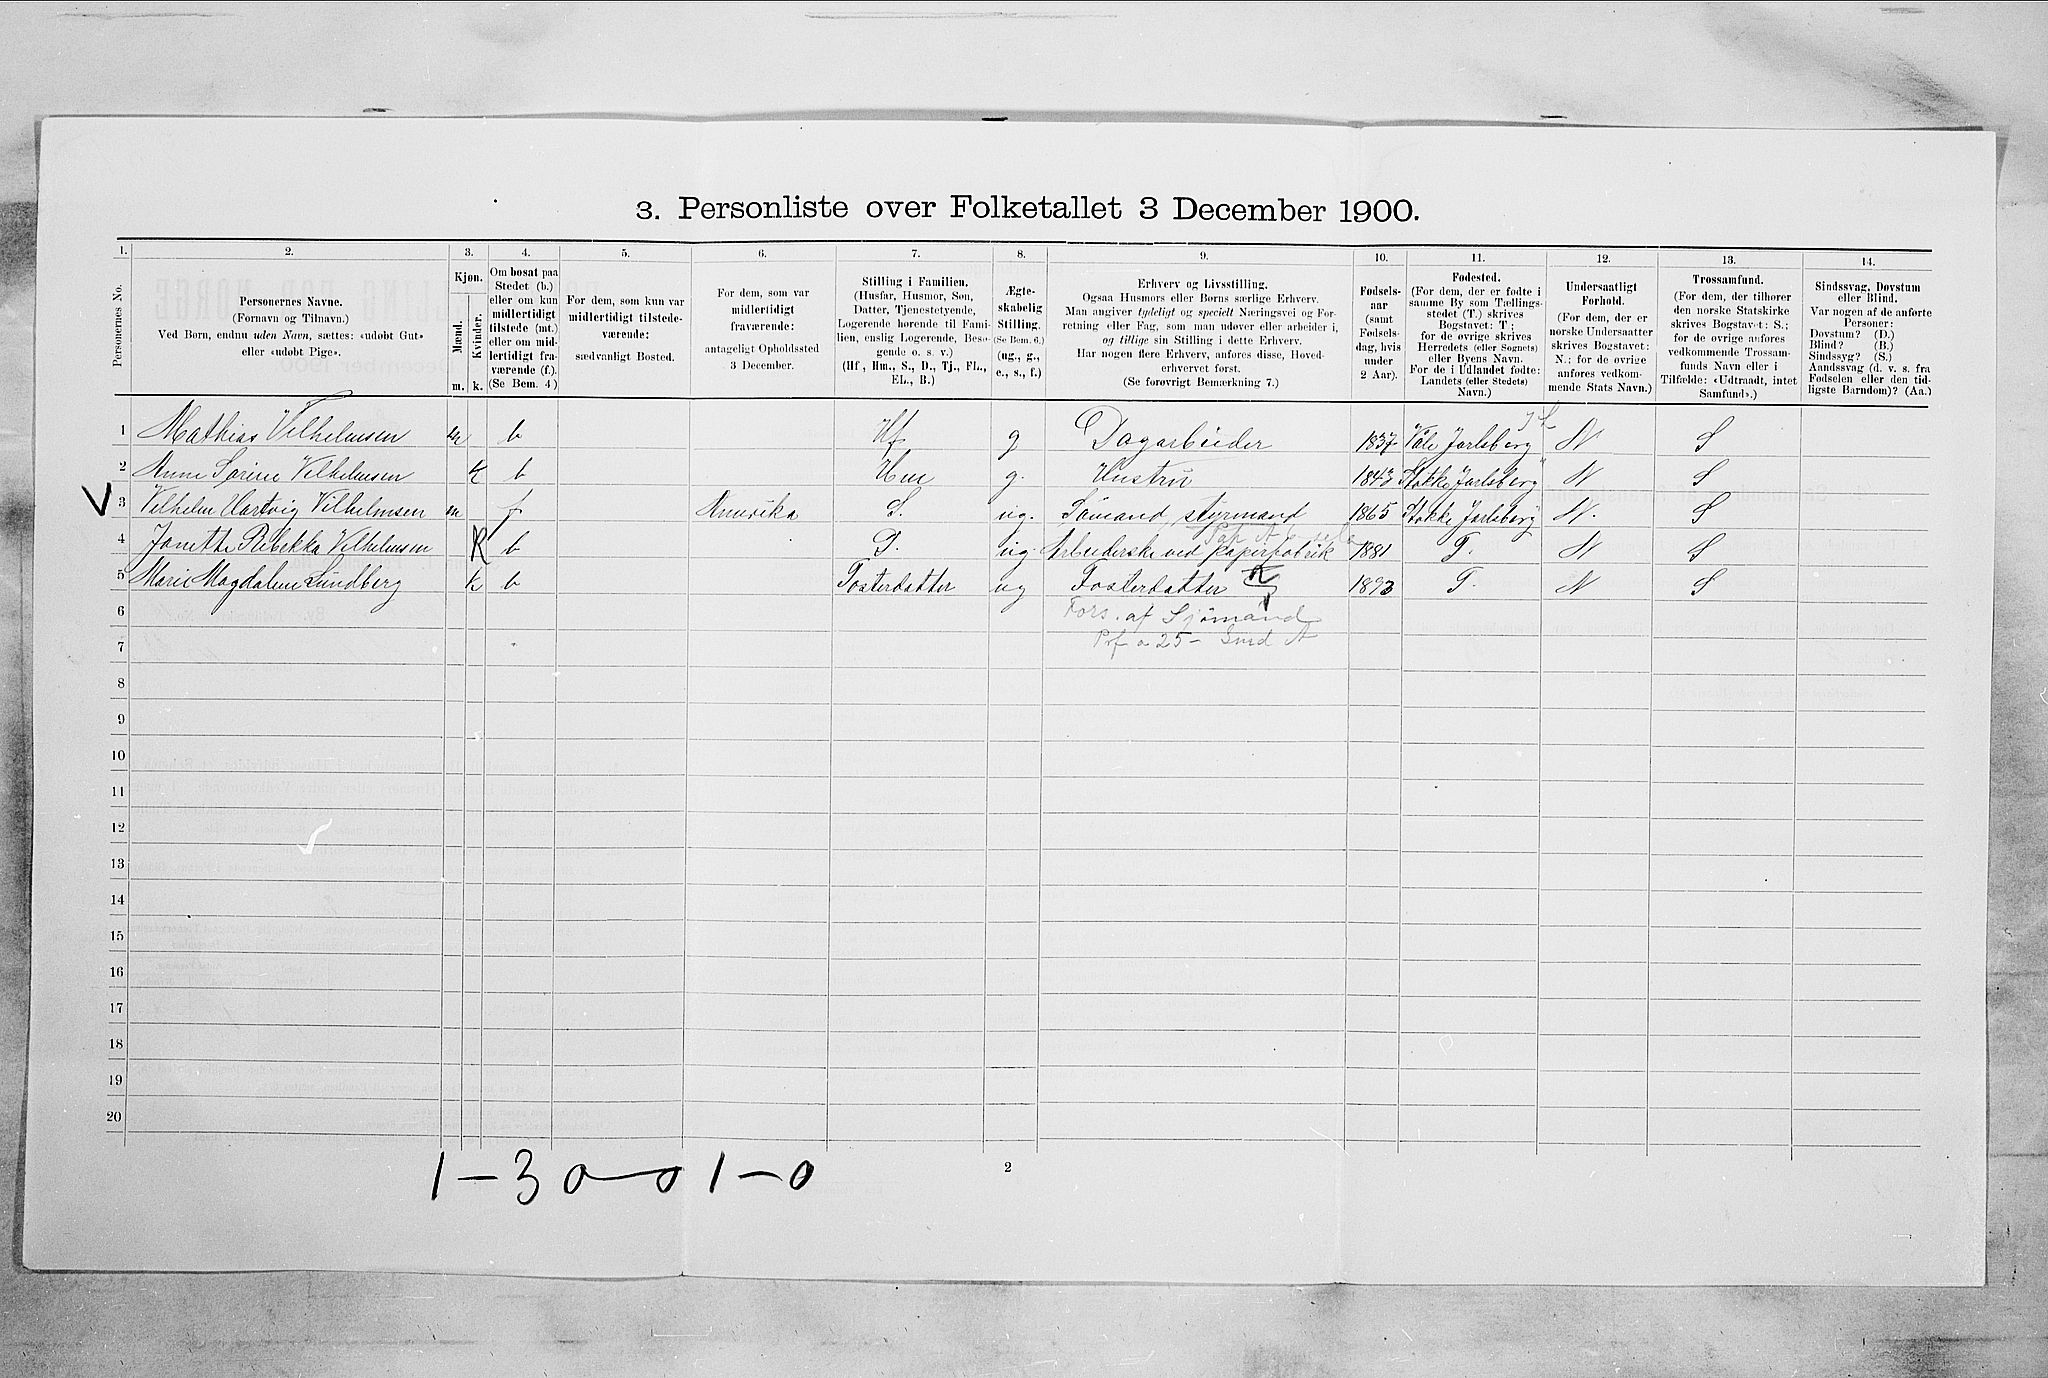 3. Personliste over Folketallet 3 December 1900.
1. 2. 3. 4. 5. 6. 7. 8. 9. 10. 11. 12. 13. 14.
Personernes No.
Personernes Navne.
(Fornavn og Tilnavn.)
Ved Børn, endnu uden Navn, sættes: «udøbt Gut»
eller «udøbt Pige».
Kjøn.
Mænd. Kvinder.
m. k.
Om bosat paa
Stedet (b.)
eller om kun
midlertidigt
tilstede (mt.)
eller om mid-
lertidigt fra-
værende (f.).
(Se Bem. 4.)
For dem, som kun var
midlertidigt tilstede-
værende:
sædvanligt Bosted.
For dem, som var
midlertidigt
fraværende:
antageligt Opholdssted
3 December.
Stilling i Familien.
(Husfar, Husmor, Søn,
Datter, Tjenestetyende,
Logerende hørende til Fami-
lien, enslig Logerende, Besø-
gende o. s. v.)
(Hf., Hm., S., D., Tj., FL.,
EL., B.)
Ægte-
skabelig
Stilling.
(Se Bem. 6.)
(ug., g.,
e., s., f.)
Erhverv og Livsstilling.
Ogsaa Husmors eller Børns særlige Erhverv.
Man angiver tydeligt og specielt Næringsvei og For-
retning eller Fag, som man udøver eller arbeider i,
og tillige sin Stilling i dette Erhverv.
Har nogen flere Erhverv, anføres disse, Hoved-
erhvervet først.
(Se forøvrigt Bemærkning 7.)
Fødsels-
aar
(samt
Fødsels-
dag, hvis
under
2 Aar).
Fødested.
(For dem, der er fødte i
samme By som Tællings-
stedet (T.) skrives
Bogstavet: T;
for de øvrige skrives
Herredets (eller Sognets)
eller Byens Navn.
For de i Udlandet fødte:
Landets (eller Stedets)
Navn.)
Undersaatligt
Forhold.
(For dem, der er
norske Undersaatter
skrives Bogstavet:
N.; for de øvrige
anføres vedkom-
mende Stats Navn.)
Trossamfund.
(For dem, der tilhører
den norske Statskirke
skrives Bogstavet: S.;
for de øvrige anføres
vedkommende Trossam-
funds Navn eller i
Tilfælde: «Udtraadt, intet
Samfund».)
Sindssvag, Døvstum
eller Blind.
Var nogen af de anførte
Personer:
Døvstum? (D.)
Blind? (B.)
Sindssyg? (S.)
Aandssvag (d. v. s. fra
Fødselen eller den tid-
ligste Barndom)? (Aa.)
1 Mathias Vilhelmsen m b Hf g Dagarbeider 1837 Våle Jarlsberg N S
2 Anne Sorine Vilhelmsen k b Hm g. Hustru 1843 Stokke Jarlsberg N S
V 3 Vilhelm Hartvig Vilhelmsen m f Amerika S. ug. Sömand, styrmand 1865 Stokke Jarlsberg N. S
4 Janette Rebekka Vilhelmsen K b D. ug. Arbeiderske ved papirfabrik 1881 T. N S
5 Marie Magdalene Lundberg k b Fosterdatter ug Fosterdatter 1893 T. N S
6 Fors. af Sjömand
7
8
9
10
11
12
13
14
15
16
17
18
19
20
1 – 3 0 – 0 1 – 0
2